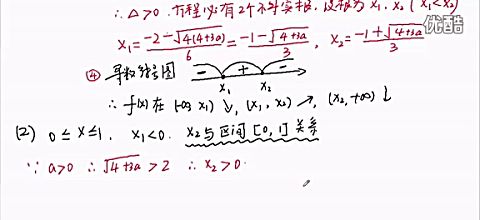 ∴ △>0. 方程必有2个不等实根, 设根为 x₁, x₂ (x₁<x₂)
x₁ = (-2-√(4(4+3a)))/6 = (-1-√(4+3a))/3 , x₂ = (-1+√(4+3a))/3
④ 导数结图 - + - x₁ x₂
∴ f(x) 在 (-∞, x₁) ↓, (x₁, x₂) ↗, (x₂, +∞) ↓
(2) 0≤x≤1. x₁<0. x₂与区间 [0, 1] 关系
∵ a>0 ∴ √(4+3a) > 2 ∴ x₂>0.
优酷